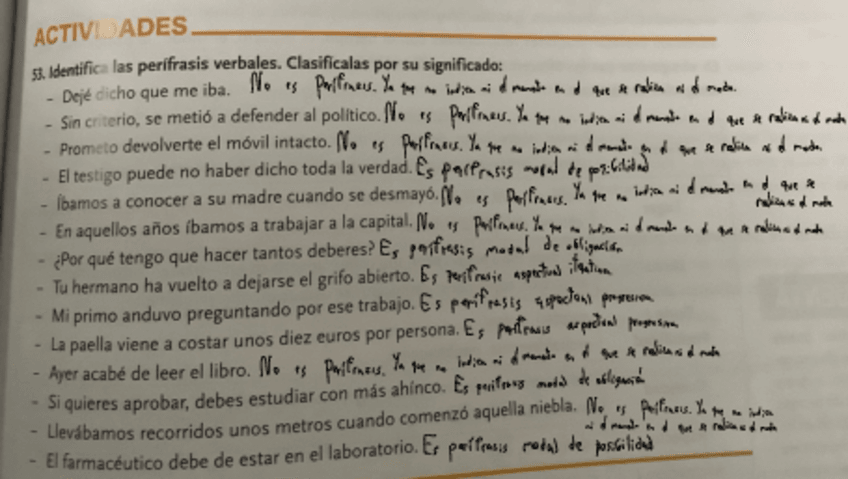 ACTIVIDADES
53. Identifica las perífrasis verbales. Clasifícalas por su significado:
- Dejé dicho que me iba. No es Perífrasis. Ya que no indica ni el momento en el que se realiza ni el modo.
- Sin criterio, se metió a defender al político. No es Perífrasis. Ya que no indica ni el momento en el que se realiza ni el modo
- Prometo devolverte el móvil intacto. No es Perífrasis. Ya que no indica ni el momento en el que se realiza ni el modo.
- El testigo puede no haber dicho toda la verdad. Es perífrasis modal de posibilidad
- Íbamos a conocer a su madre cuando se desmayó. No es Perífrasis. Ya que no indica ni el momento en el que se
realiza ni el modo
- En aquellos años íbamos a trabajar a la capital. No es Perífrasis. Ya que no indica ni el momento en el que se realiza ni el modo
- ¿Por qué tengo que hacer tantos deberes? Es perífrasis modal de obligación
- Tu hermano ha vuelto a dejarse el grifo abierto. Es perífrasis aspectual iterativa
- Mi primo anduvo preguntando por ese trabajo. Es perífrasis aspectual progresiva
- La paella viene a costar unos diez euros por persona. Es perífrasis aspectual progresiva
- Ayer acabé de leer el libro. No es Perífrasis. Ya que no indica ni el momento en el que se realiza ni el modo
- Si quieres aprobar, debes estudiar con más ahínco. Es perífrasis modal de obligación
- Llevábamos recorridos unos metros cuando comenzó aquella niebla. No es Perífrasis. Ya que no indica
ni el momento en el que se realiza ni el modo
- El farmacéutico debe de estar en el laboratorio. Es perífrasis modal de posibilidad